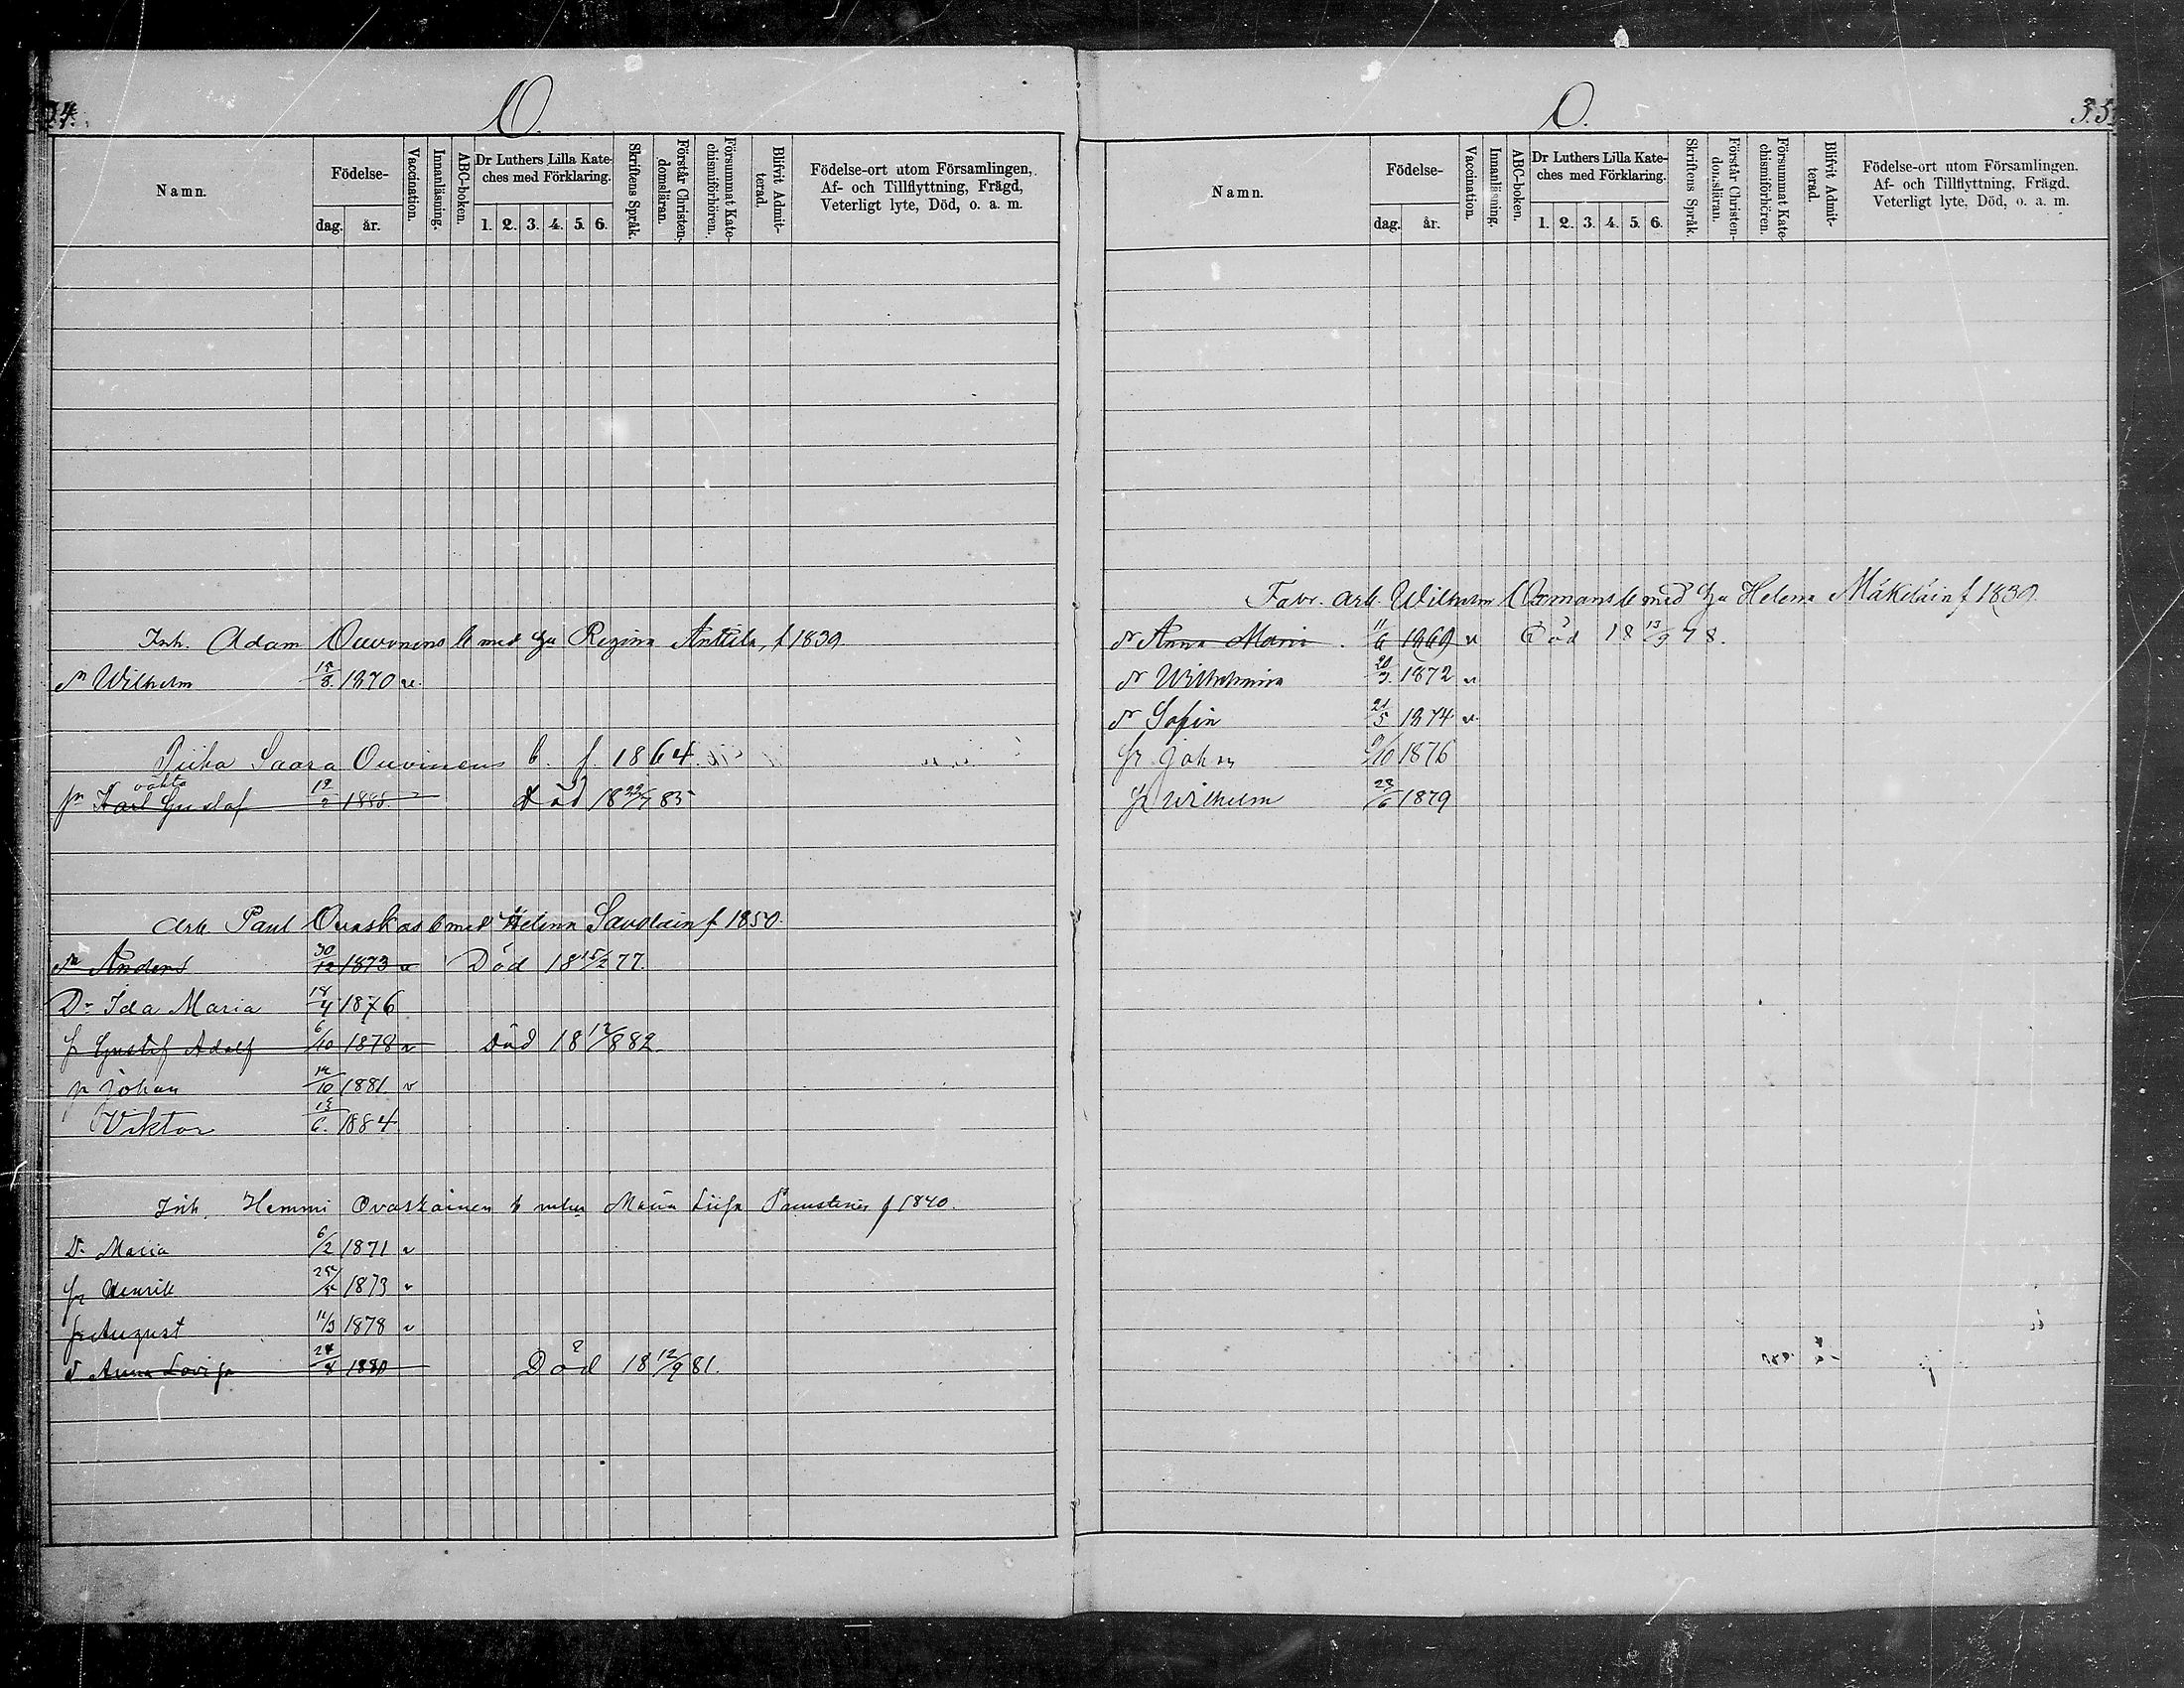 O.
Namn.
Födelse-
dag. år.
Vaccination.
Innanläsning.
ABC-boken.
Dr Luthers Lilla Kate-
ches med Förklaring.
1. 2. 3. 4. 5. 6.
Skriftens Språk.
Förstår Christen-
domsläran.
Försummat Kate-
chismiförhören.
Blifvit Admit-
terad.
Födelse-ort utom Församlingen,
Af- och Tillflyttning, Frägd,
Veterligt lyte, Död, o. a. m.
Inh. Adam Ouvonens b med Regina Anttila, f 1839
Wilhelm 1870 v.
Piika Saara Ouvinens b. f. 1864.
Gustaf Död 18 22/7 85
Arb. Paul Ovaskas b med Helena Savolain f 1850.
Anders 30/12 1873 v Död 18 15/2 77.
Dr Ida Maria 18/4 1876
Gustaf Adolf 6/10 1878 v Död 18 12/8 82.
Johan 1881 v
Viktor 13/6. 1884.
Inh. Hemmi Ovaskainen b Maria f 1840.
D. Maria 6/2 1871 v
Henrik 1873 v
August 11/3 1878 v
Anna Lovisa 1880 Död 18 12/9 81.
O.
35.
Namn.
Födelse-
dag. år.
Vaccination.
Innanläsning.
ABC-boken.
Dr Luthers Lilla Kate-
ches med Förklaring.
1. 2. 3. 4. 5. 6.
Skriftens Språk.
Förstår Christen-
domsläran.
Försummat Kate-
chismiförhören.
Blifvit Admit-
terad.
Födelse-ort utom Församlingen.
Af- och Tillflyttning, Frägd.
Veterligt lyte, Död, o. a. m.
Fabr. arb. Wilhelm b med Helena Mäkeläin f 1839.
Anna Maria 11/6 1869 v Död 18 13/9 78.
Wilhelmina 1872 v
Sofia 21/5 1874 v.
Johan 1876
Wilhelm 23/6 1879